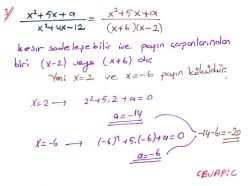 3)
x²+5x+a / x²+4x-12 = x²+5x+a / (x+6)(x-2)
kesir sadeleşebilir ise payın çarpanlarından
biri (x-2) veya (x+6) dır.
Yani x=2 ve x=-6 payın köküdür.
x=2 → 2²+5.2+a=0
a=-14
x=-6 → (-6)²+5.(-6)+a=0
a=-6
-14-6=-20
CEVAP: C